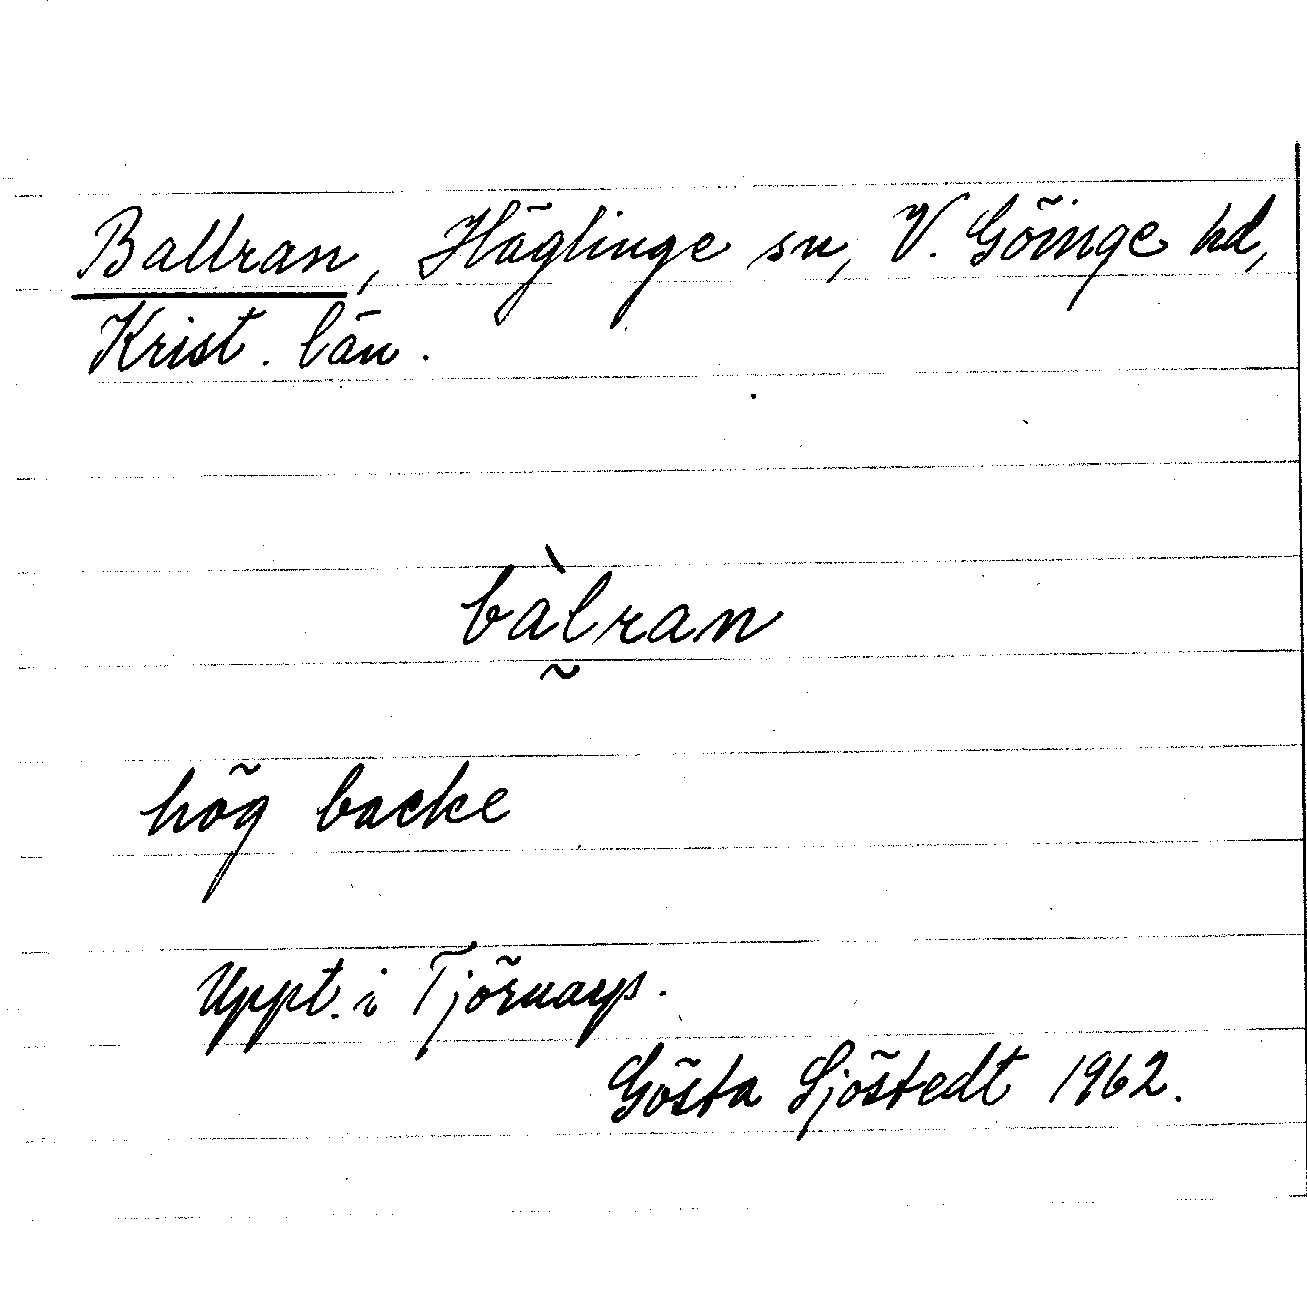 Ballran, Häglinge sn, V. Göinge hd,
Krist. län.
bàlran
~
hög backe
Uppt. i Tjörnarp.
Gösta Sjöstedt 1962.